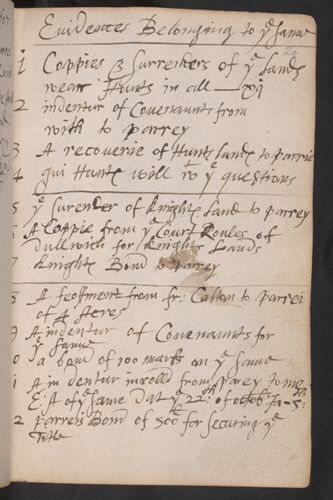 Evidences Belonging to yᵉ same
1 Coppies & Surrenders of yᵉ Lands
wear Hunts in all — xij
2 indentur of Covenaunts from
with to parrey
3 A recoverie of Hunts Lands to parrie
4 gui Hunts will wᵗʰ yᵉ questions
5 yᵉ Surender of Knights Land to parrey
6 A Coppie from yᵉ Court Roules of
dullwich for Knights Lands
7 Knights Bond to parrey
8 A feoffment from fr: Calton to parrei
of 4 Acres
9 A indentur of Covenaunts for
yᵉ same
10 a band of 100 marks on yᵉ same
11 A indentur inroled from parey to me
E: A of yᵉ same Dat yᵉ 22 of octob Ja - 5
12 parreis Bond of 500ˡⁱ for securing yᵉ
Title